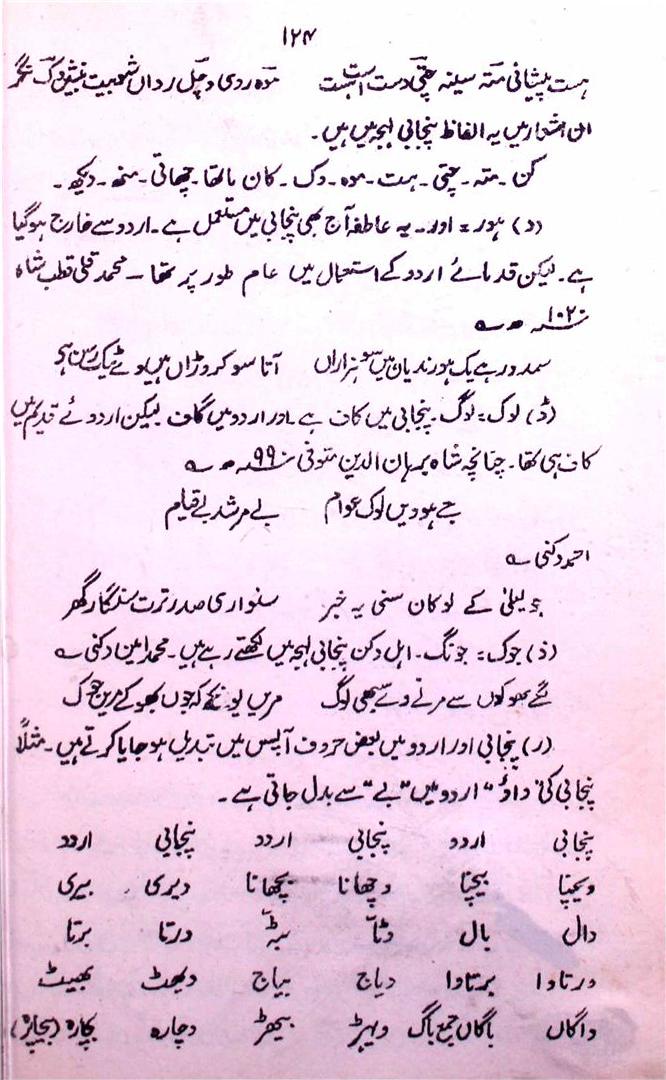 ۱۲۴
ہست پیشانی متہ سینہ چتی دست است ہت موہ روی و چل رواں
ان اشعار میں یہ الفاظ پنجابی لہجہ میں ہیں۔
کن۔ متہ۔ چتی۔ ہت۔ موہ۔ دک۔ کان ماتھا۔ چھاتی۔ منھ۔ دیکھ۔
(د) ہور = اور۔ یہ عاطفہ آج بھی پنجابی میں مستعمل ہے۔ اردو سے خارج ہوگیا
ہے۔ لیکن قدمائے اردو کے استعمال میں عام طور پر تھا۔ محمد قلی قطب شاہ
۱۰۲۰ ھ ؎
سمدور ہے یک ہور ندیاں میں سو ہزاراں
(ڈ) لوک = لوگ۔ پنجابی میں کاف ہے۔ اور اردو میں گاف لیکن اردوئے قدیم میں
کاف ہی تھا۔ چنانچہ شاہ برہان الدین متوفی ۹۹۰ ھ ؎
جے ہوویں لوک عوام بے مرشد بے قیام
احمد دکنی ؎
جو لیلیٰ کے لوکان سنی یہ خبر سنواری صدر ترت سنگار گھر
(ذ) جوک = جونگ۔ اہل دکن پنجابی لہجہ میں لکھتے رہے ہیں۔ محمد امین دکنی ؎
لگے بھوکوں سے مرنے وے سبھی لوگ مریں یو نچے کہ جوں بھوکے مریں جوک
(ر) پنجابی اور اردو میں بعض حروف آپس میں تبدیل ہو جایا کرتے ہیں۔ مثلاً
پنجابی کی "واؤ" اردو میں "بے" سے بدل جاتی ہے۔
پنجابی اردو پنجابی اردو پنجابی اردو
ویچنا بیچنا وچھانا بچھانا ویری بیری
وال بال وٹا بٹہ ورتا برتا
ورتاوا برتاوا ویاج بیاج وبھٹ بھیٹ
واگاں باگاں جمع باگ ویہڑ بیھڑ وچارہ بچارہ (بچاڑہ)